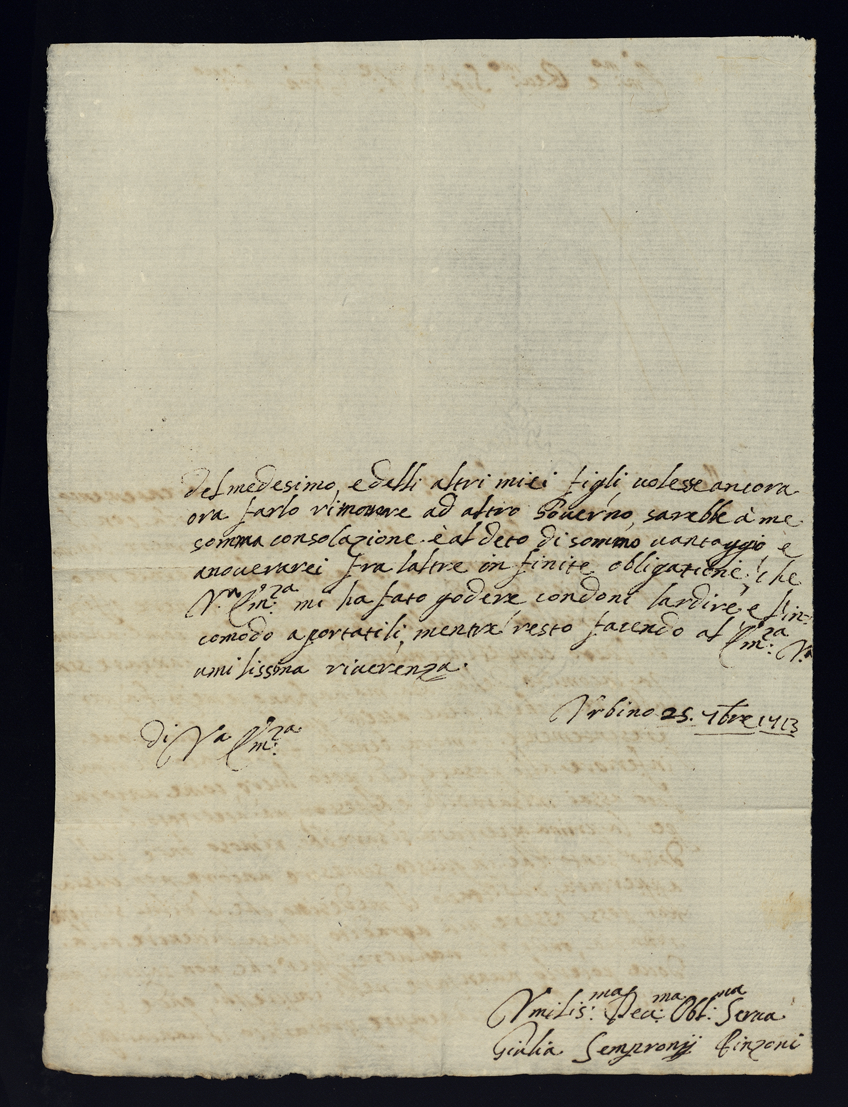 del medesimo, e delli altri miei figli uolesse ancora
ora farlo rimouere ad altro Gouerno, sarebbe à me
somma consolazione. è al deto di sommo uantaggio è
anouerarei fra laltre in finite obligatione, che
V.ra Em:za mi ha fato godere condoni lardire, e l'in:
comodo aportatili, mentre resto facendo al Em:za V.ra
umilissima riuerenza.
Vrbino 25. 7bre 1713
di V.ra Em:za
Vmilis:ma Deu:ma Obl:ma Serua
Giulia Sempronij Pinzoni